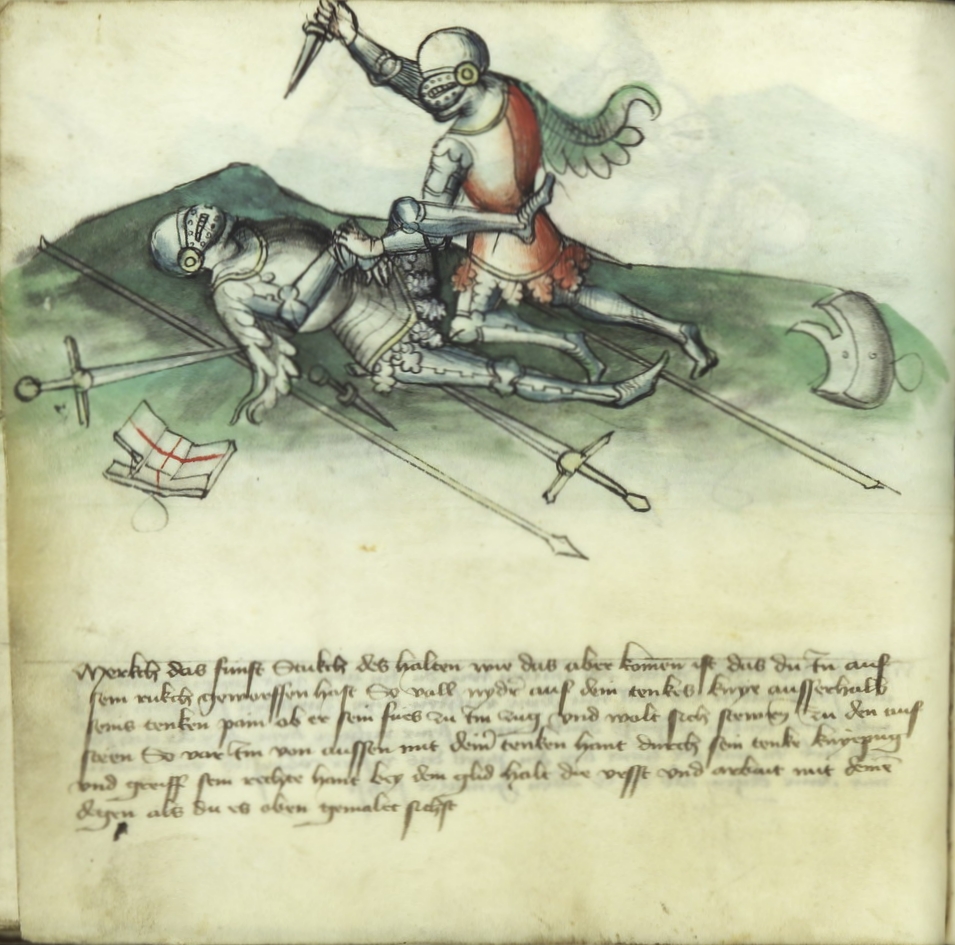 Merkch das funfft Stukch des halten wie das aber komen ist das du Im auf
sein rukch geworffen hast So vall nyder auf dein tenkes knye ausserhalb
seins tenken pain ob er sein fues zu Im zug und wolt sich stewren zu den auf
steen So var Im von aussen mit deiner tenken hant durch sein tenke kniepug
und greiff sein rechte hant bey dem glid halt die vesst und arbait mit deinem
degen als du es oben gemalet sichst